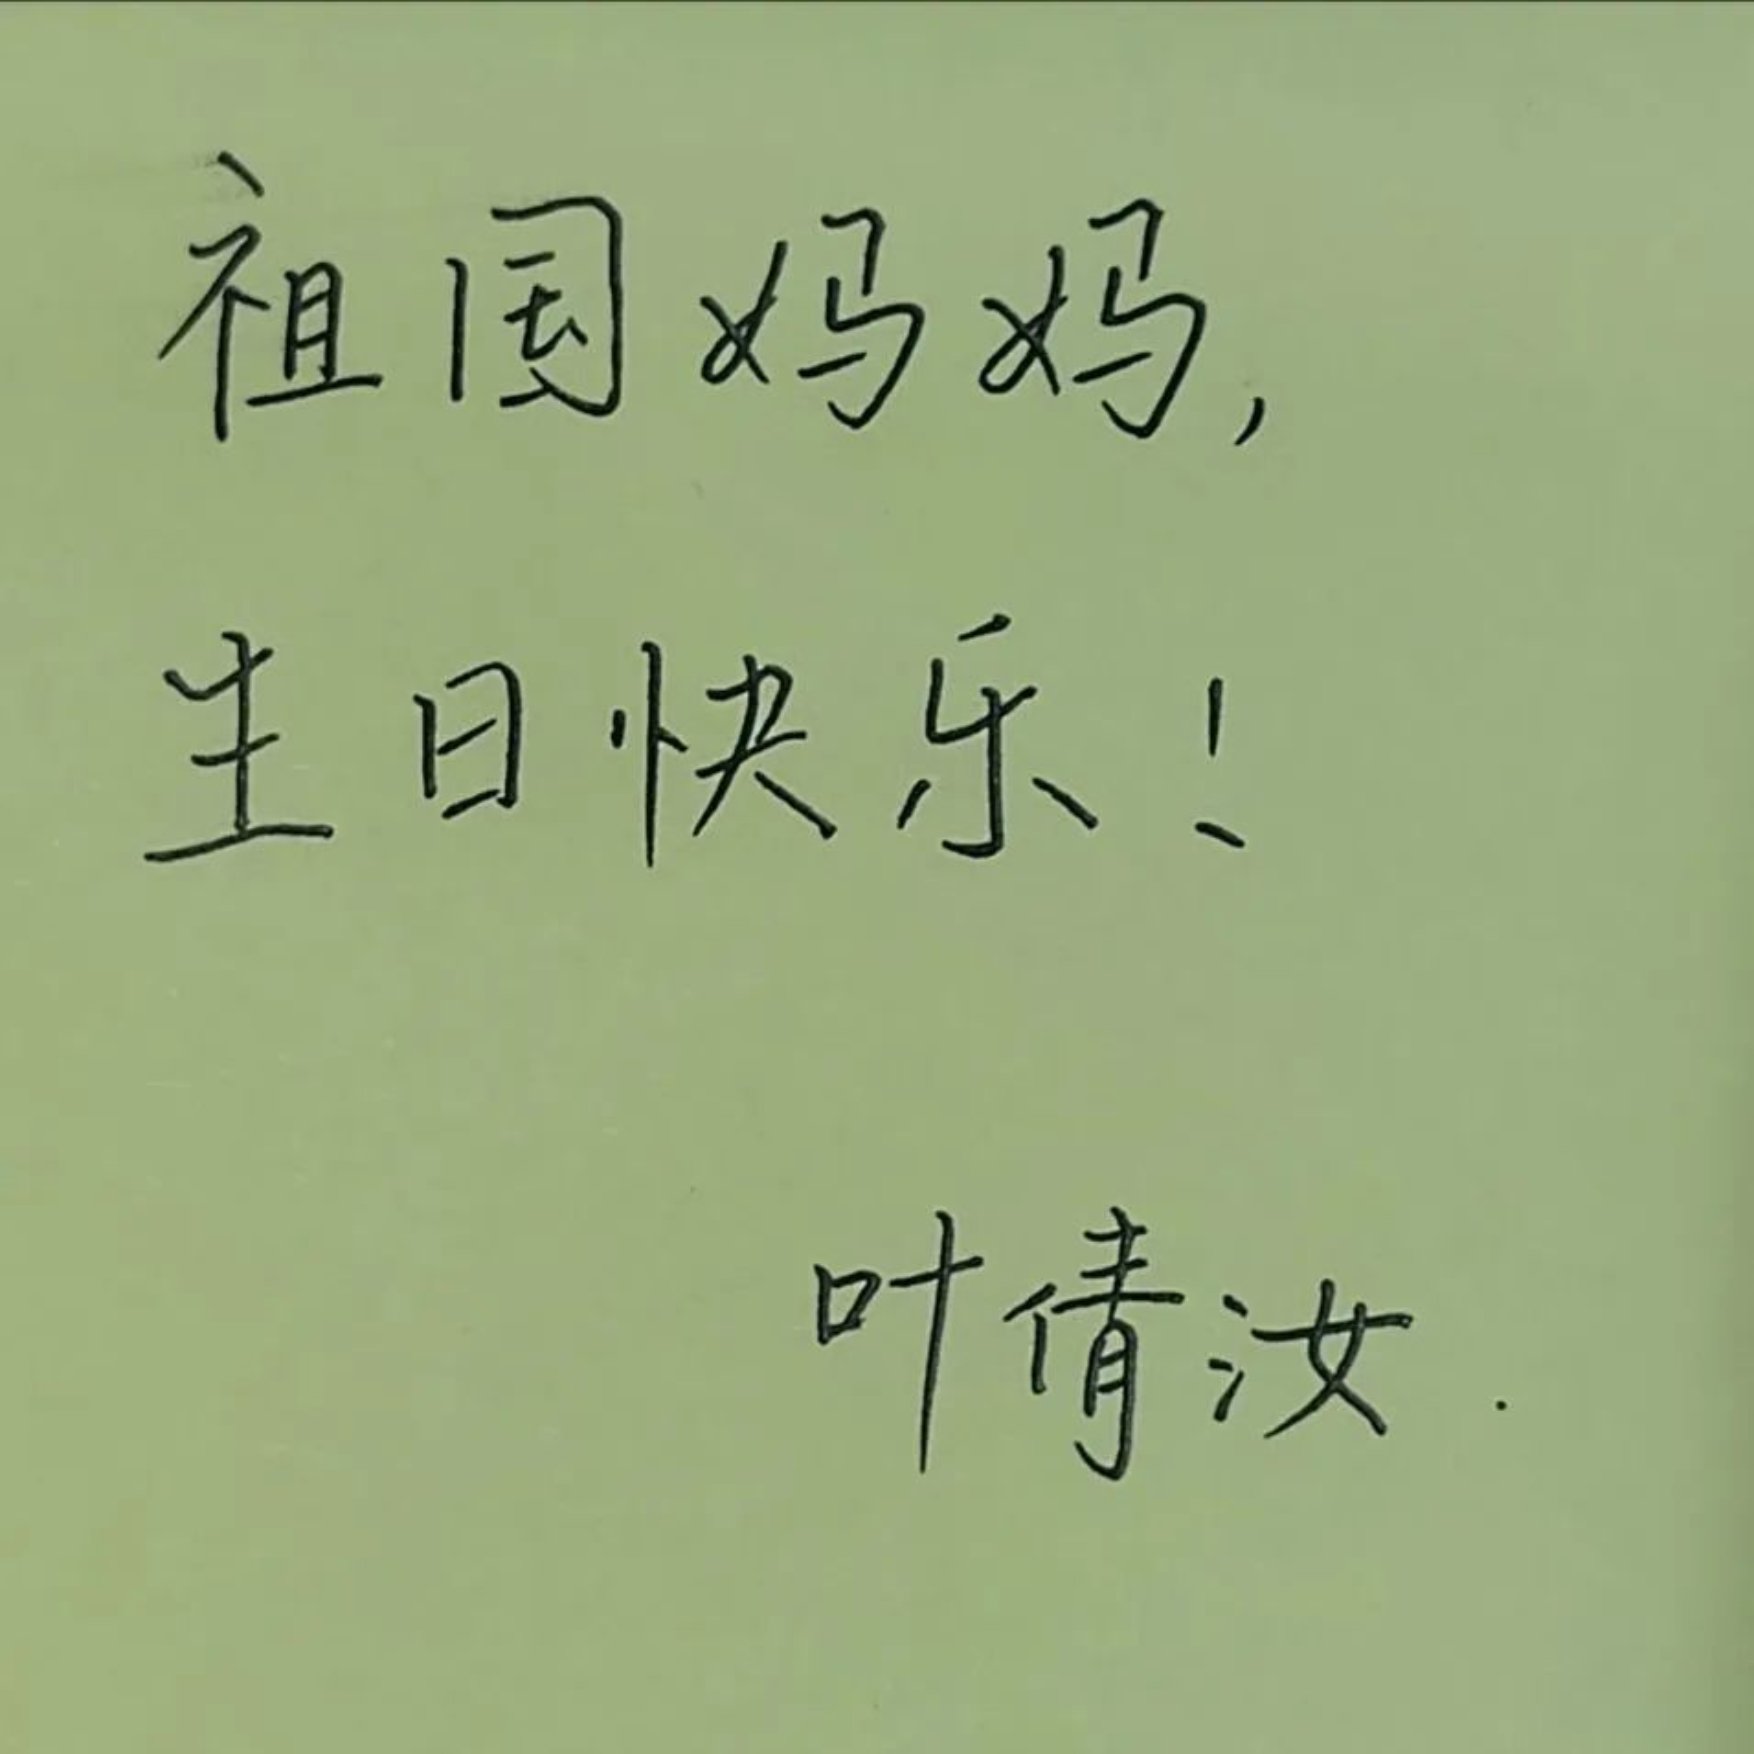 祖国妈妈，
生日快乐！
叶倩汝.